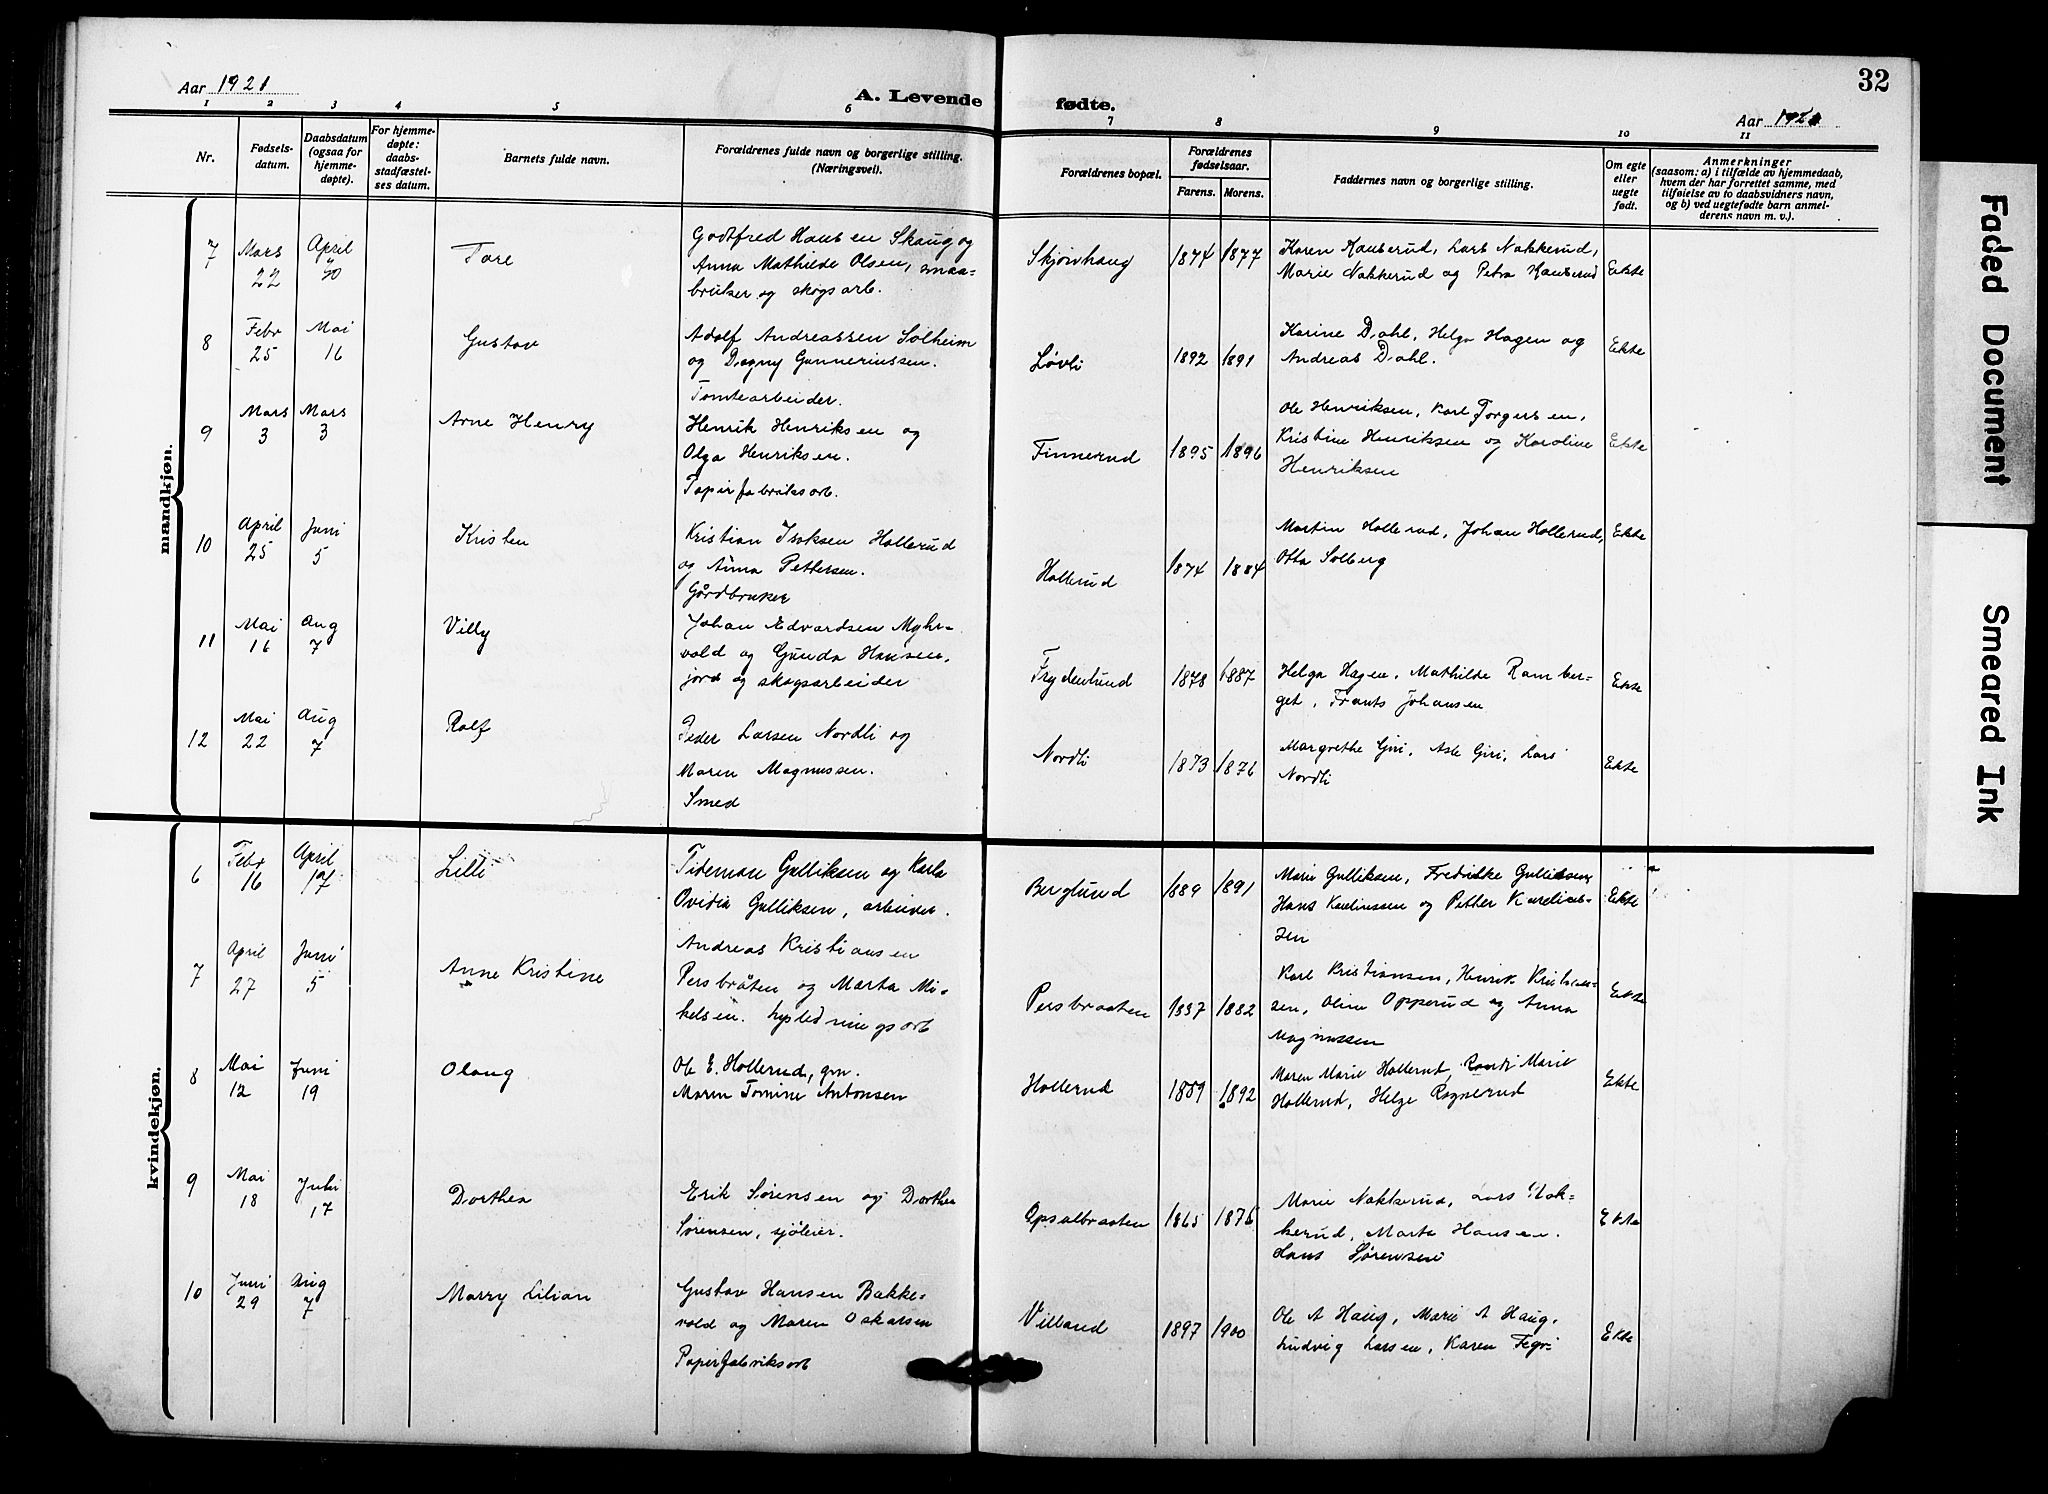 Aar 1921
A. Levende fødte.
Aar 1921
32
1 2 3 4 5 6 7 8 9 10 11
Nr.
Fødsels-
datum.
Daabsdatum
(ogsaa for
hjemme-
døpte).
For hjemme-
døpte:
daabs-
stadfæstel-
ses datum.
Barnets fulde navn.
Forældrenes fulde navn og borgerlige stilling.
(Næringsvei).
Forældrenes bopæl.
Forældrenes
fødselsaar.
Farens. Morens.
Faddernes navn og borgerlige stilling.
Om egte
eller
uegte
født.
Anmerkninger
(saasom: a) i tilfælde av hjemmedaab,
hvem der har forrettet samme, med
tilføielse av to daabsvidners navn,
og b) ved uegtefødte barn anmel-
derens navn m. v.).
mandkjøn.
7
Mars
22
April
Tore
Godtfred Hansen Skaug og
Anna Mathilde Olsen, smaa-
bruker og skogsarb.
Skjønhaug
1874 1877
Karen Kauserud, Lars Nakkerud,
Marie Nakkerud og Petra Kauserud
Ekte
8
Febr
25
Mai
16
Gustav
Adolf Andreassen Solheim
og Dagny Gunneriussen.
Tomtearbeider.
Løvli
1892 1891
Karine Dahl, Helga Hagen og
Andreas Dahl.
Ekte
9
Mars
3
Mars
3
Arne Henry
Henrik Henriksen og
Olga Henriksen.
Papirfabriksarb.
Finnerud
1895 1896
Ole Henriksen, Karl Torgersen,
Kristine Henriksen og Karoline
Henriksen
Ekte
10
April
25
Juni
5
Kristen
Kristian Isaksen Hollerud
og Anna Pettersen.
Gårdbruker
Hollerud
1874 1884
Martin Hollerud, Johan Hollerud,
Otto Solberg
Ekte
11
Mai
16
Aug
7
Villy
Johan Edvardsen Myhr-
vold og Gunda Hansen,
jord og skogsarbeider
Frydenlund
1878 1887
Helga Hagen, Mathilde Ramber-
get, Frants Johansen
Ekte
12
Mai
22
Aug
7
Rolf
Peder Larsen Nordli og
Maren Magnussen.
Smed
Nordli
1873 1876
Margrethe Giri, Asle Giri, Lars
Nordli
Ekte
kvindekjøn.
6
Febr
16
April
17
Lilli
Tideman Gulliksen og Karla
Ovidia Gulliksen, arbeider.
Berglund
1889 1891
Marie Gulliksen, Fredrikke Gulliksen,
Hans Karlinussen og Petter
sen
Ekte
7
April
27
Juni
5
Anne Kristine
Andreas Kristiansen
Persbråten og Marta Mi-
kelsen. Lysledningsarb
Persbraaten
1882
Karl Kristiansen, Henrik Kristian-
sen, Oline Opperud og Anna
Magnussen
Ekte
8
Mai
12
Juni
19
Olaug
Ole E. Hollerud, grn.
Maren Tomine Antonsen
Hollerud
1889 1892
Maren Marie Hollerud, Randi Marie
Hollerud, Helge Ragnerud
Ekte
9
Mai
18
Juli
17
Dorthea
Erik Sørensen og Dorthea
Sørensen, sjøleier.
Opsalbraaten
1865 1876
Marie Nakkerud, Lars Nak-
kerud, Marta Hansen.
Hans Sørensen
Ekte
10
Juni
29
Aug
7
Marry Lilian
Gustav Hansen Bakke-
vold og Maren Oskarsen
Papirfabriksarb
Villand
1897 1900
Ole A Haug, Marie A Haug,
Ludvig Larsen, Karen Tegri
Ekte
Faded Document
Smeared Ink